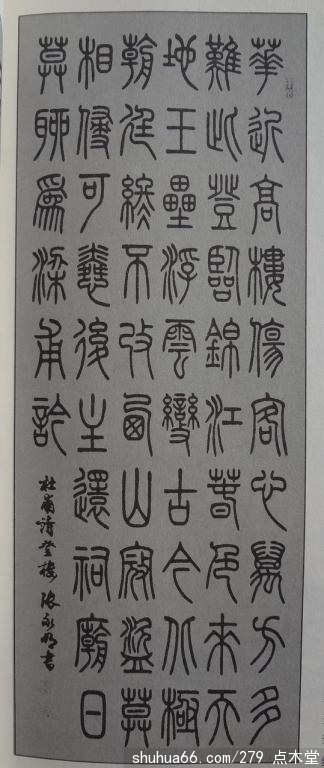 華近高樓傷客心萬方多
難此登臨錦江春色來天
地玉壘浮雲變古今北極
朝廷終不改西山寇盜莫
相侵可憐後主還祠廟日
莫聊爲梁甫訡
杜甫詩登樓 張永明書
shuhua66.com/279 点木堂